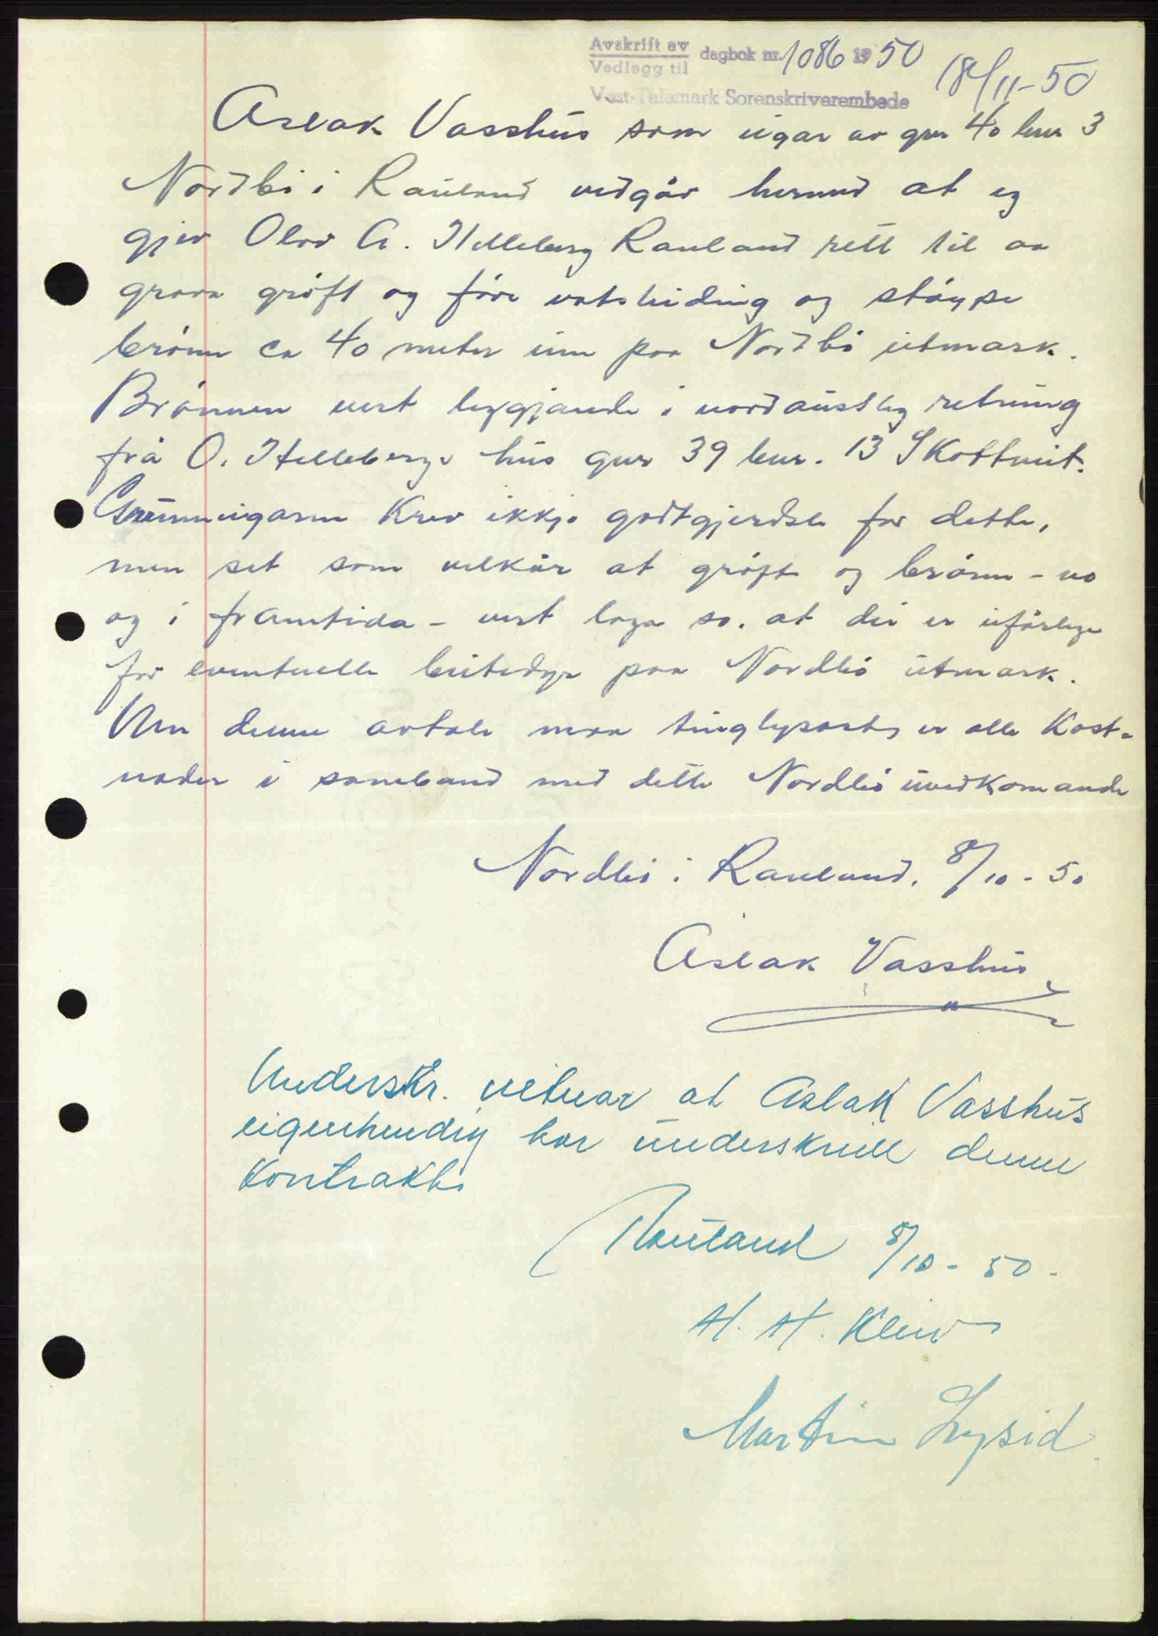 Avskrift av
Vedlegg til dagbok nr. 1086 1950 18/11-50
Vest-Telemark Sorenskriverembede
Aslak Vasshus som eigar av gnr 40 bnr 3
Nordbø i Rauland vedgår hermed at eg
gjev Olav A. Helleberg Rauland rett til aa
grava grøft og føre vatsleiding og støype
brønn ca 40 meter inn paa Nordbø utmark.
Brønnen vert liggjande i nordaustleg retning
frå O. Hellebergs hus gnr 39 bnr. 13 Skottveit.
Grunneigaren krev ikkje godtgjerdsle for dette,
men set som vilkår at grøft og brønn - no
og i framtida - vert laga so. at dei er ufårlege
for eventuelle beitedyr paa Nordbø utmark.
Um denne avtale maa tinglysast, er alle kost-
nader i samband med dette Nordbø uvedkomande
Nordbø i Rauland, 8/10-50
Aslak Vasshus
Underskr. vitnar at Aslak Vasshus
eigenhendig har underskrive denne
kontrakt.
Rauland 8/10-50-
H. H. Kleiv
Martin